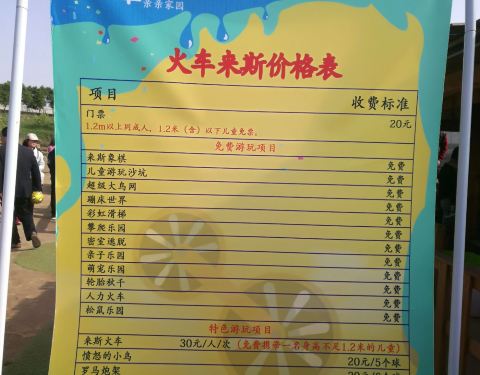 亲亲家园
火车来斯价格表
项目 收费标准
门票 20元
1.2m以上到成人，1.2米（含）以下儿童免票。
免费游玩项目
来斯象棋 免费
儿童游玩沙坑 免费
超级大鸟网 免费
蹦床世界 免费
彩虹滑梯 免费
攀爬乐园 免费
密室逃脱 免费
亲子乐园 免费
萌宠乐园 免费
轮胎秋千 免费
人力火车 免费
松鼠乐园 免费
特色游玩项目
来斯火车 30元/人/次（免费携带一名身高不足1.2米的儿童）
愤怒的小鸟 20元/5个球
罗马炮架